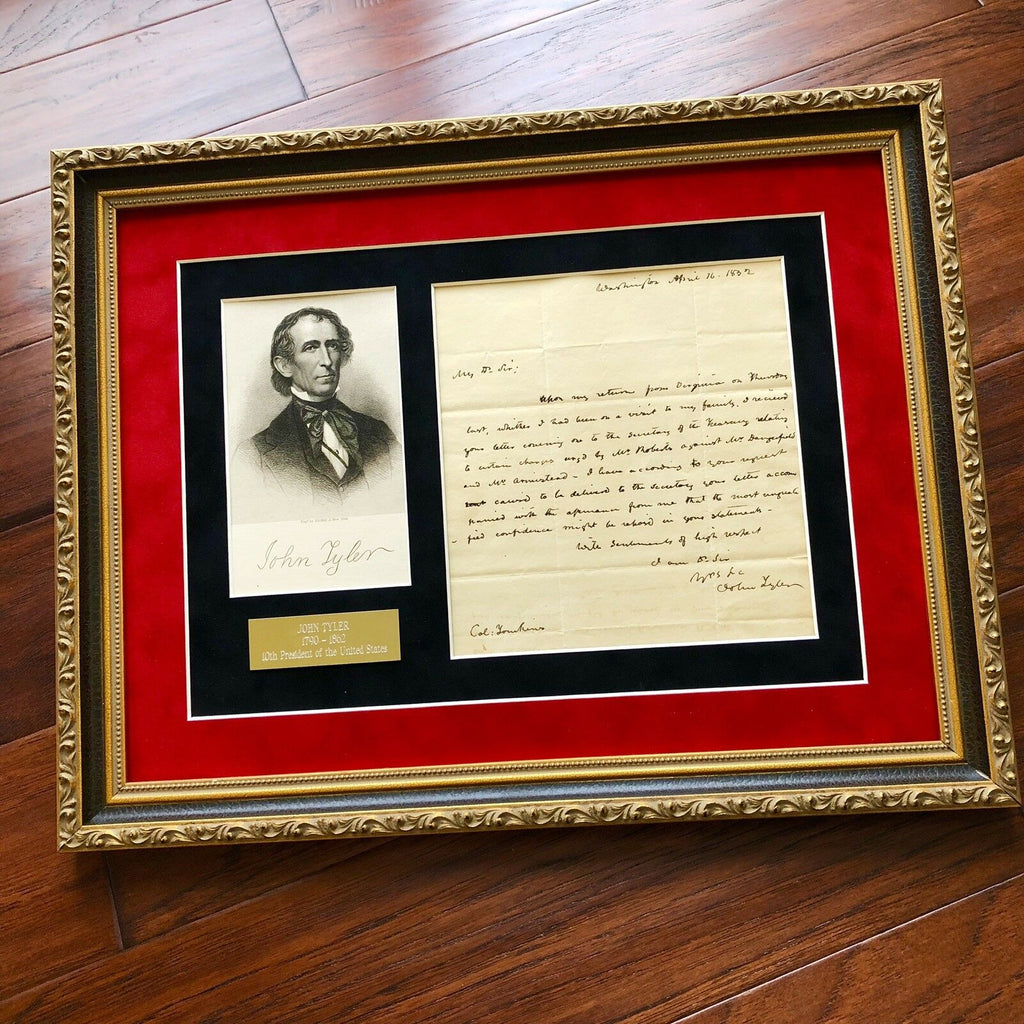 John Tyler
JOHN TYLER
1790 – 1862
10th President of the United States
Washington April 16. 1832
My Dr. Sir;
Upon my return from Virginia on Thursday
last, whither I had been on a visit to my family, I received
your letter covering one to the Secretary of the Treasury relating
to certain charges urgd by Mr. Roberts against Mr. Dangerfield
and Mr. Armistead - I have according to your request
caused to be delivered to the Secretary your letter accom
panied with the assurance from me that the most unquali
fied confidence might be reposd in your statements -
With sentiments of high respect
I am Dr. Sir
Yrs &c
John Tyler
Col: Tomkins